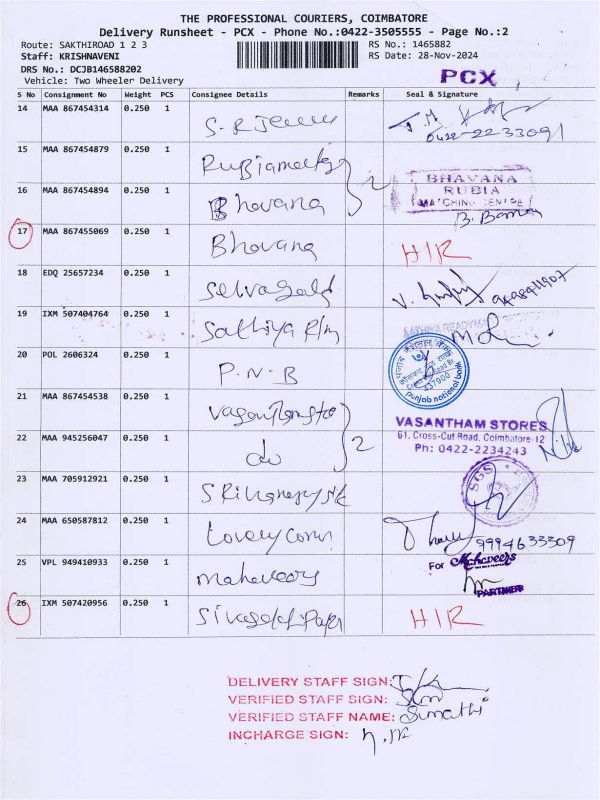 THE PROFESSIONAL COURIERS, COIMBATORE
Delivery Runsheet - PCX - Phone No.:0422-3505555 - Page No.:2
Route: SAKTHIROAD 1 2 3
RS No.: 1465882
Staff: KRISHNAVENI
RS Date: 28-Nov-2024
DRS No.: DCJB146588202
Vehicle: Two Wheeler Delivery
PCX
S No Consignment No Weight PCS Consignee Details Remarks Seal & Signature
14 MAA 867454314 0.250 1
0422-2233091
15 MAA 867454879 0.250 1
16 MAA 867454894 0.250 1 Bhavana 2
BHAVANA
RUBIA
MATCHING CENTRE
17 MAA 867455069 0.250 1 Bhavana HIR
18 EDQ 25657234 0.250 1 Selvagold
19 IXM 507404764 0.250 1 Sathiya
20 POL 2606324 0.250 1 P.N.B
punjab national bank
21 MAA 867454538 0.250 1
VASANTHAM STORES
61, Cross-Cut Road, Coimbatore-12
Ph: 0422-2234243
22 MAA 945256047 0.250 1 do 2
23 MAA 705912921 0.250 1
SGS
24 MAA 650587812 0.250 1 9994633309
25 VPL 949410933 0.250 1 mahaveers
For Mahaveers
PARTNER
26 IXM 507420956 0.250 1 HIR
DELIVERY STAFF SIGN:
VERIFIED STAFF SIGN:
VERIFIED STAFF NAME: Sumathi
INCHARGE SIGN: